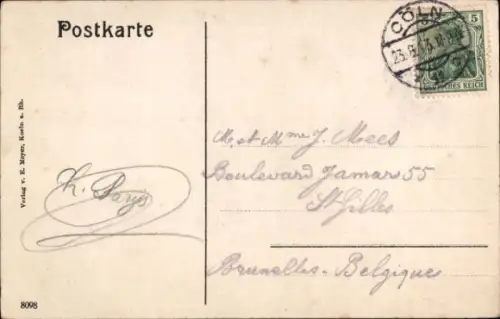 Postkarte
Verlag v. E. Meyer, Koeln a. Rh.
8098
CÖLN
23.8.
5
DEUTSCHES REICH
M. et Mme J. Mees
Boulevard Jamar 55
St Gilles
Bruxelles - Belgique